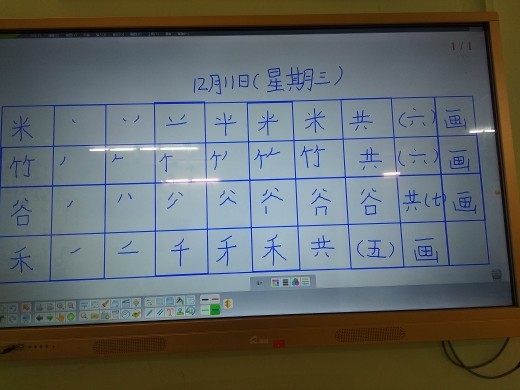 1/1
12月11日(星期三)
米 丶 丷 䒑 半 米 米 共 (六) 画
竹 ノ 𠂉 ケ 竹 共 (六) 画
谷 ノ 八 谷 共(七) 画
禾 ノ 二 千 禾 禾 共 (五) 画